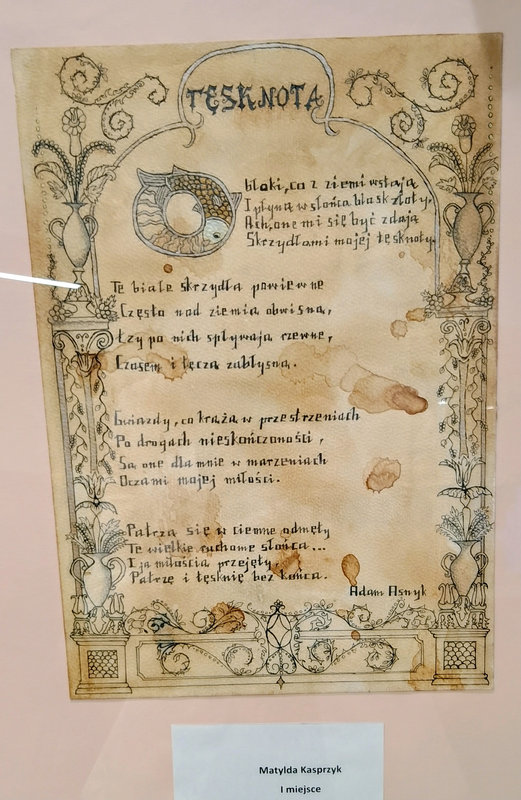 TĘSKNOTA
Obłoki, co z ziemi wstają
I płyną w słońca blask złoty,
Ach, one mi się być zdają
Skrzydłami mojej tęsknoty.
Te białe skrzydła powiewne
Często nad ziemią obwisną,
Łzy po nich spływają rzewne,
Czasem i tęczą zabłysną.
Gwiazdy, co krążą w przestrzeniach
Po drogach nieskończoności,
Są one dla mnie w marzeniach
Oczami mojej miłości.
Patrzą się w ciemne odmęty
Te wielkie ruchome słońca...
I ja miłością przejęty,
Patrzę i tęsknię bez końca.
Adam Asnyk
Matylda Kasprzyk
I miejsce